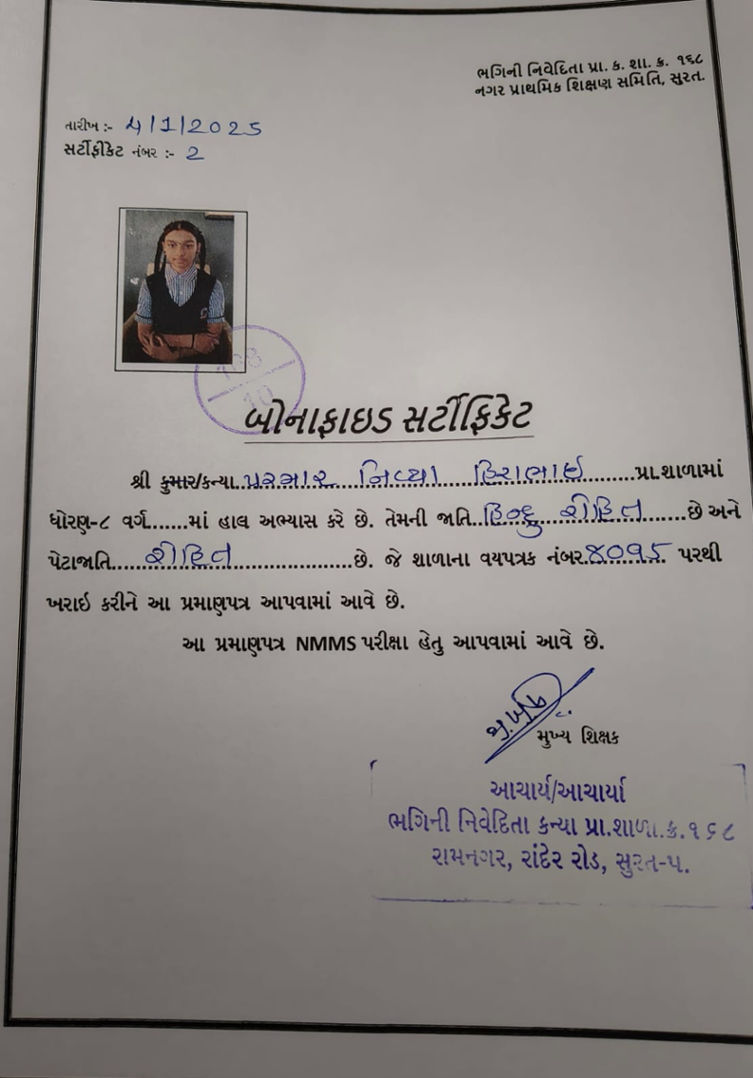 ભગિની નિવેદિતા પ્રા. ક. શા. ક્ર. ૧૬૮
નગર પ્રાથમિક શિક્ષણ સમિતિ, સુરત.
તારીખ :- 4/1/2025
સર્ટીફીકેટ નંબર :- 2
બોનાફાઇડ સર્ટીફિકેટ
શ્રી કુમાર/કન્યા..પરમાર નિવ્યા હિરાભાઈ.......પ્રા.શાળામાં
ધોરણ-૮ વર્ગ.......માં હાલ અભ્યાસ કરે છે. તેમની જાતિ..હિન્દુ રોહિત.......છે અને
પેટાજાતિ.....રોહિત......................છે. જે શાળાના વયપત્રક નંબર.૪૦૧૫.. પરથી
ખરાઇ કરીને આ પ્રમાણપત્ર આપવામાં આવે છે.
આ પ્રમાણપત્ર NMMS પરીક્ષા હેતુ આપવામાં આવે છે.
મુખ્ય શિક્ષક
આચાર્ય/આચાર્યા
ભગિની નિવેદિતા કન્યા પ્રા.શાળા.ક્ર.૧૬૮
રામનગર, રાંદેર રોડ, સુરત-૫.